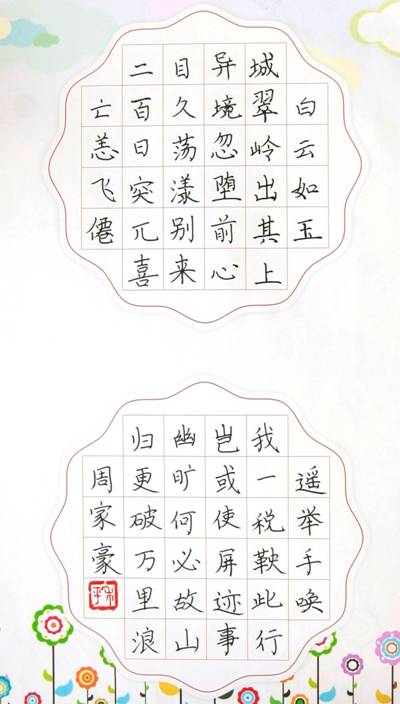 白云如玉
城翠岭出其上
异境忽堕前心
目久荡漾别来
二百日突兀喜
亡恙飞僊
遥举手唤
我一税鞅此行
岂或使屏迹事
幽旷何必故山
归更破万里浪
周家豪